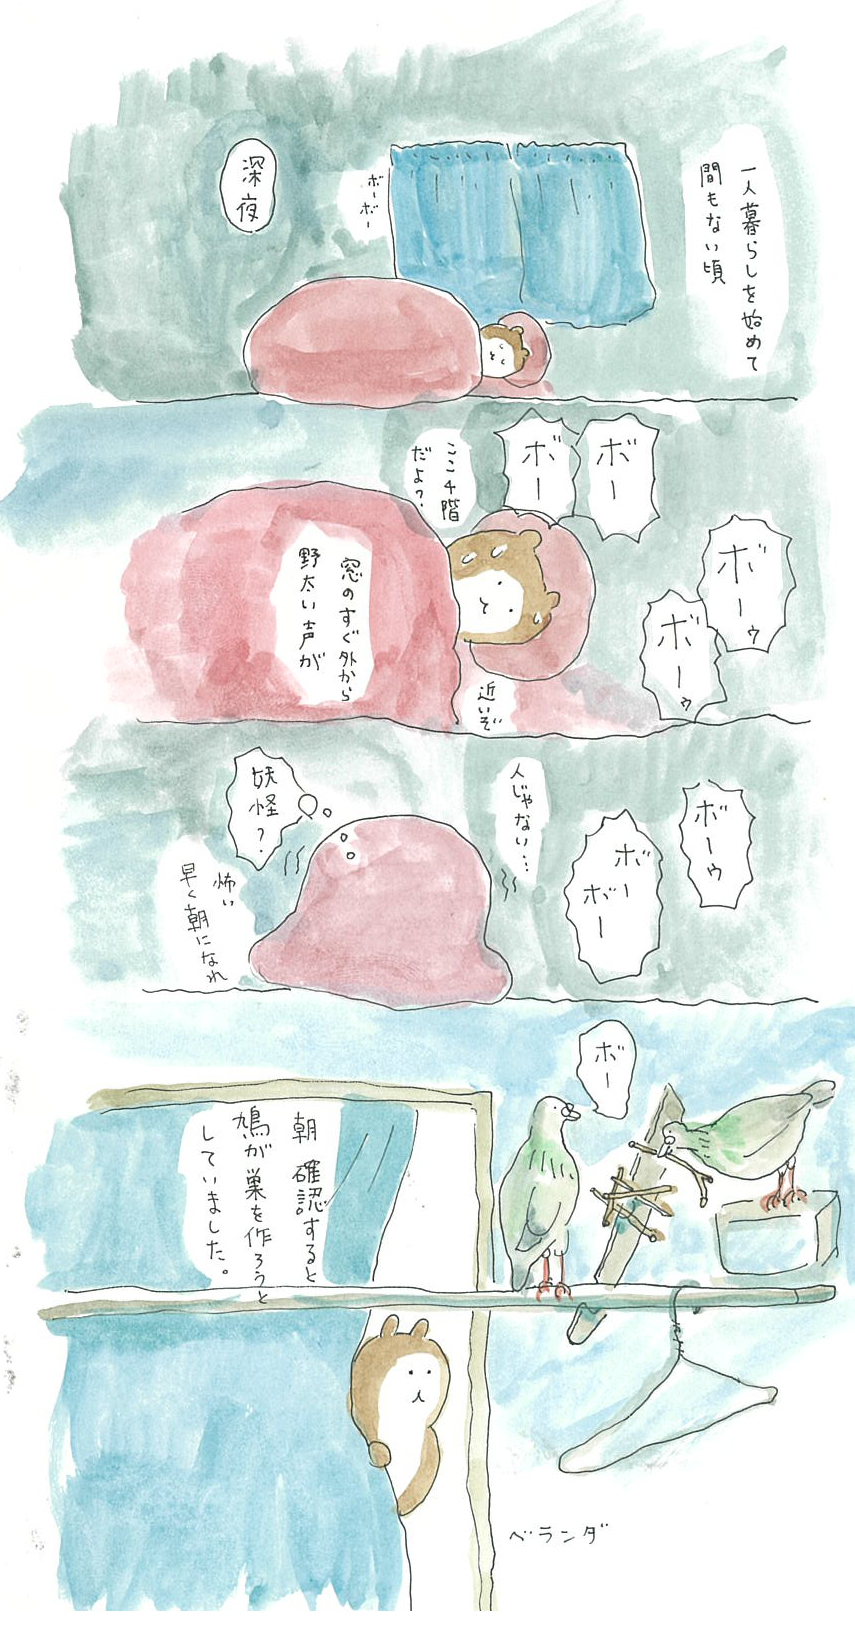 一人暮らしを始めて
間もない頃
ボーボー
深夜
ボー
ボー
ここ4階
だよ？
ボーゥ
ボーゥ
窓のすぐ外から
野太い声が
近いぞ
ボーゥ
ボー
ボー
人じゃない…
妖怪？
怖い
早く朝になれ
ボー
朝確認すると
鳩が巣を作ろうと
していました。
ベランダ